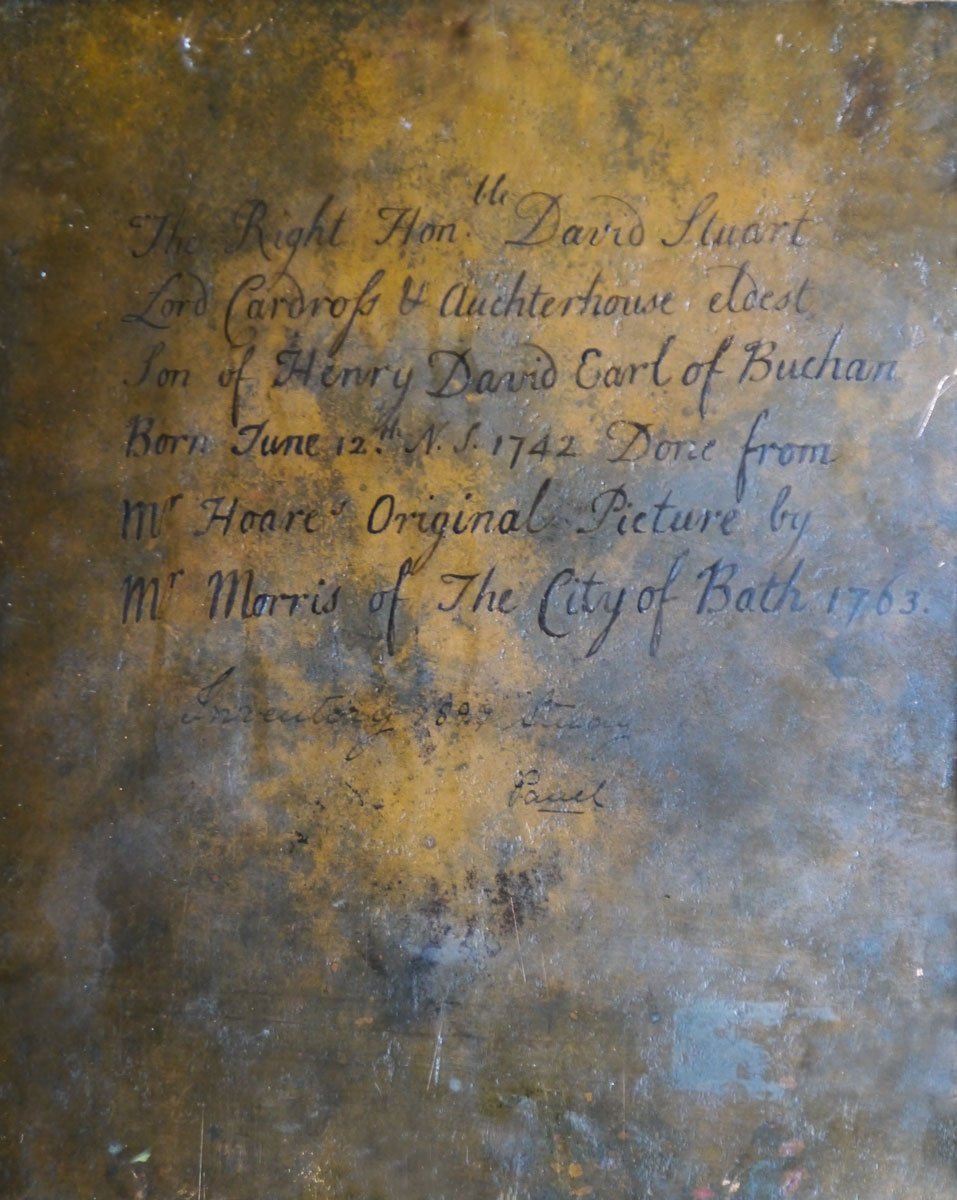 The Right Hon.ble David Stuart
Lord Cardroſs & Auchterhouse eldest
Son of Henry David Earl of Buchan
Born June 12.th N. S. 1742 Done from
Mr Hoare's Original Picture by
Mr Morris of The City of Bath 1763.
Inventory
Panel